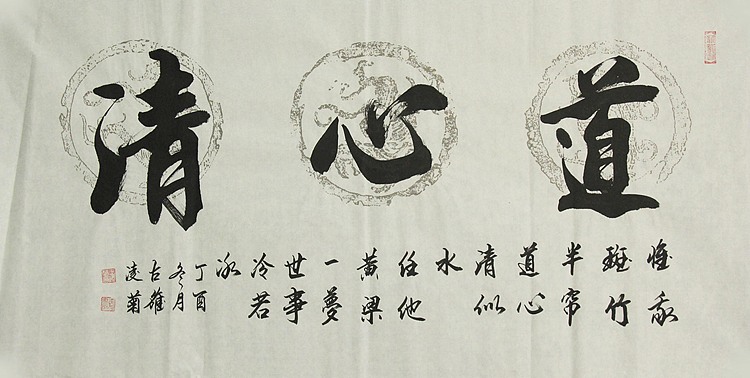 道心清
惟我
斑竹
半帘
道心
清似
水
任他
黄梁
一夢
世事
冷若
冰
丁酉
冬月
古雍
凌菊